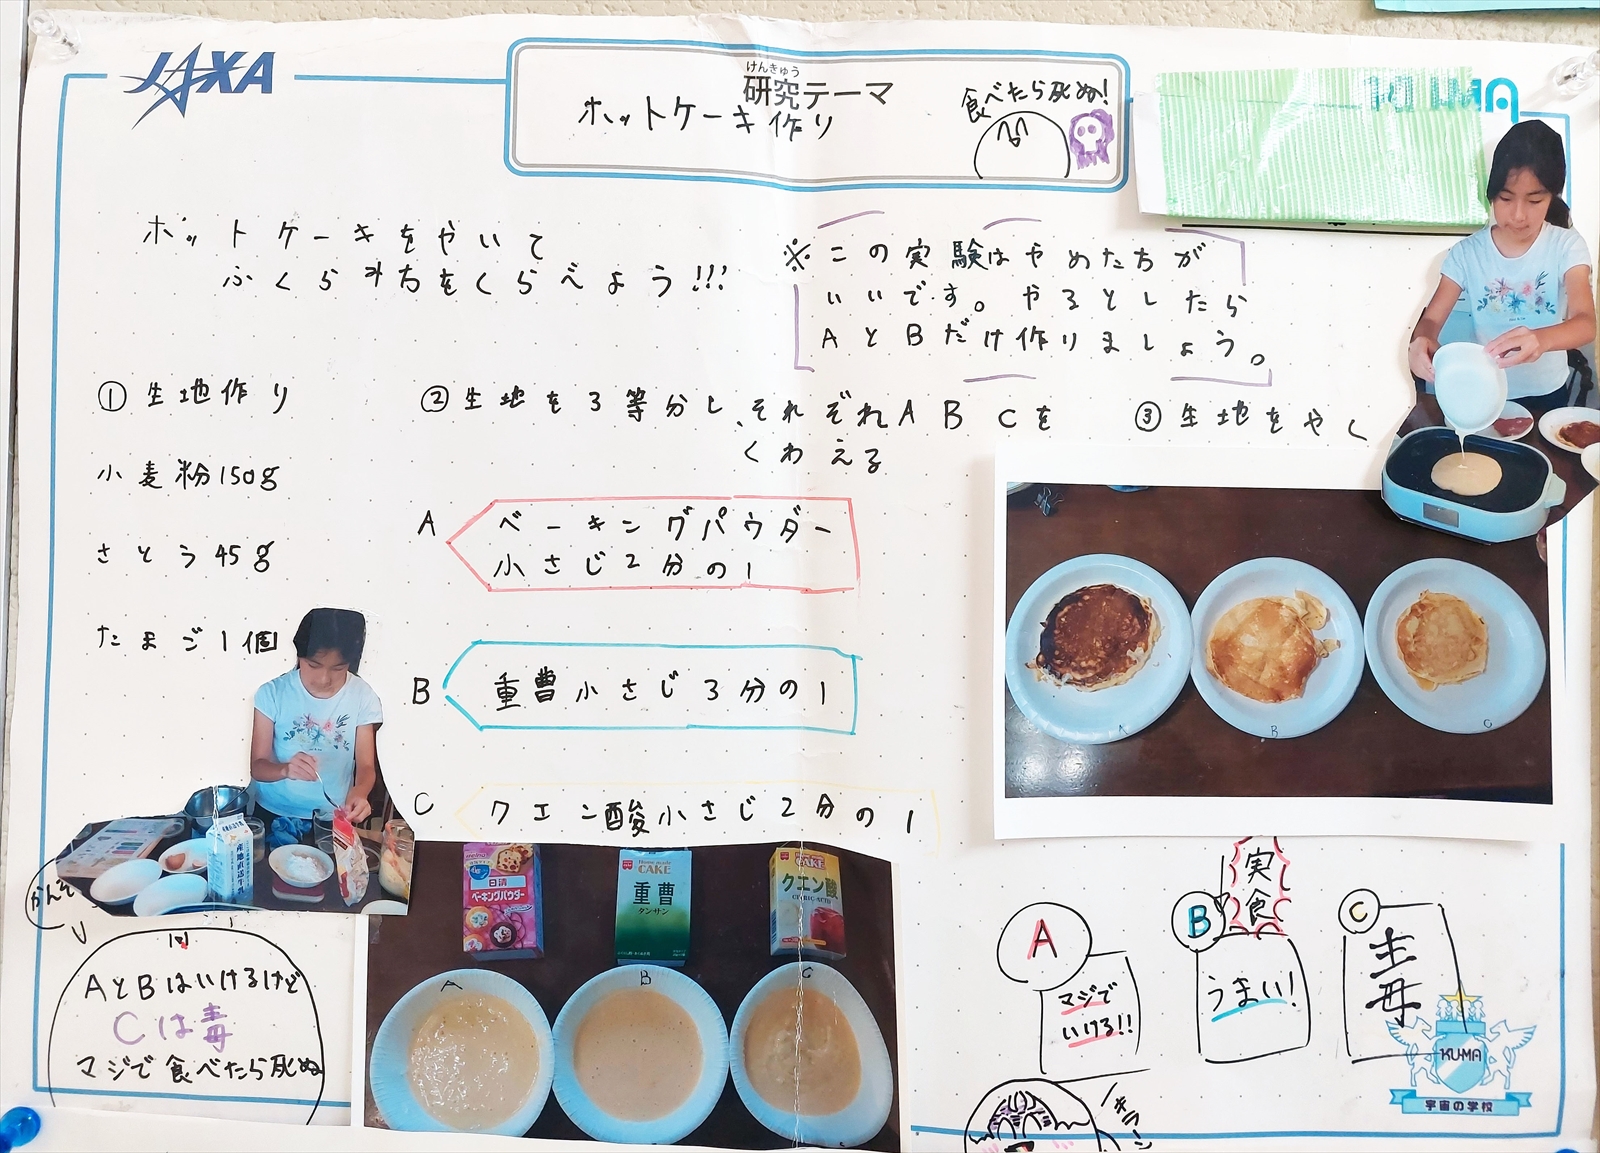 JAXA
けんきゅう
研究テーマ
ホットケーキ作り
食べたら死ぬ!
ホットケーキをやいて
ふくらみ方をくらべよう!!!
※この実験はやめた方が
いいです。やるとしたら
AとBだけ作りましょう。
①生地作り
小麦粉150g
さとう45g
たまご1個
②生地を3等分し、それぞれABCを
くわえる
A
ベーキングパウダー
小さじ2分の1
B
重曹小さじ3分の1
C
クエン酸小さじ2分の1
③生地をやく
A
B
C
日清
ベーキングパウダー
Home made
CAKE
重曹
タンサン
Home made
CAKE
クエン酸
CITRIC ACID
A
B
C
AとBはいけるけど
Cは毒
マジで食べたら死ぬ
実食
A
マジで
いける!!
B
うまい!
C
毒
キラーン
KU-MA
宇宙の学校